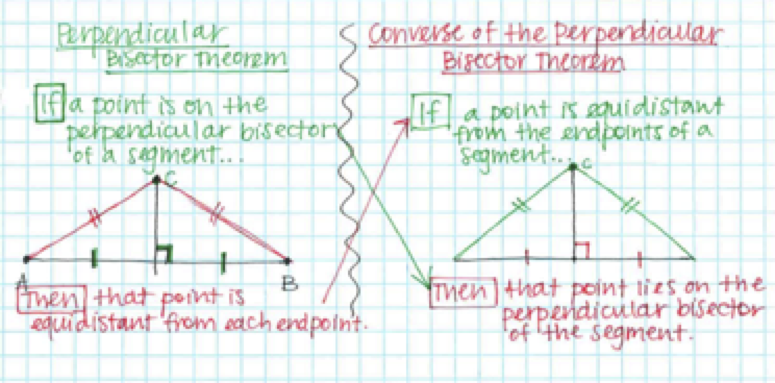 Perpendicular
Bisector Theorem
If a point is on the
perpendicular bisector
of a segment...
C
A
B
Then that point is
equidistant from each endpoint.
Converse of the Perpendicular
Bisector Theorem
If a point is equidistant
from the endpoints of a
segment...
C
Then that point lies on the
perpendicular bisector
of the segment.